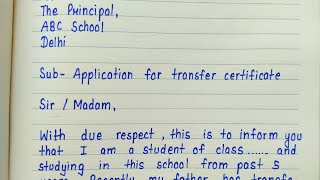 The Principal,
ABC School
Delhi
Sub- Application for transfer certificate
Sir / Madam,
With due respect, this is to inform you
that I am a student of class ...... and
studying in this school from past 5
Recently my father has transfe